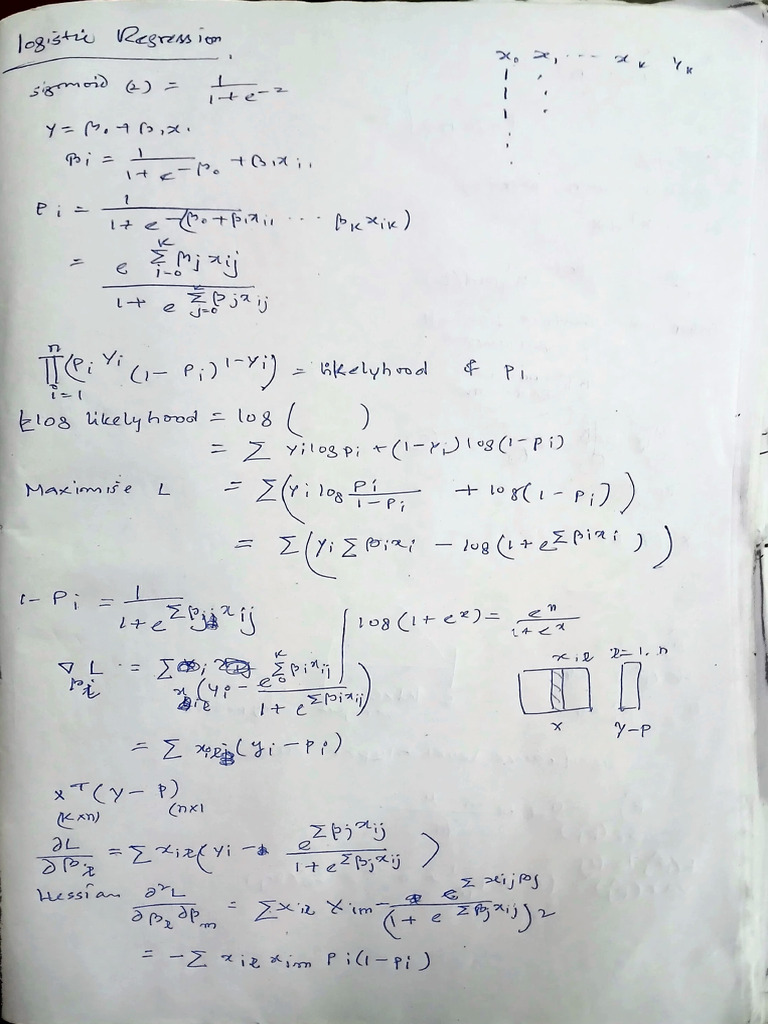 logistic Regression
x₀ x₁ ... x_k y_k
sigmoid (z) = 1/(1+e^-z)
Y = β₀ + β₁x.
Pi = 1/(1+e^-β₀ + β₁x_i1
Pi = 1/(1+e^-(β₀+β₁x_i1 ... β_k x_ik)
= e^(Σ_{i=0}^{k} βj xij) / (1+e^(Σ_{j=0}^{k} βj xij))
∏_{i=1}^{n} (Pi^Yi (1-Pi)^(1-Yi)) = likelyhood & P1
log likelyhood = log ( )
= Σ yi log pi + (1-yi) log(1-pi)
Maximise L = Σ(yi log Pi/(1-Pi) + log(1-Pi))
= Σ(yi Σβixi - log(1+e^(Σβixi)))
1-Pi = 1/(1+e^(Σβj xij))
log(1+e^x) = e^x/(1+e^x)
∇_βl L = Σ x_il (yi - e^(Σ_0^k βixij)/(1+e^(Σβixij)))
x_il l=1..n
= Σ x_il (yi-pi)
X Y-P
X^T(Y-P)
(k×n) (n×1
∂L/∂βl = Σx_il(yi - e^(Σβj xij)/(1+e^(Σβj xij)))
Hessian ∂²L/∂βl∂βm = Σx_il x_im - e^(Σxijβj)/(1+e^(Σβj xij))²
= -Σ x_il x_im Pi(1-Pi)